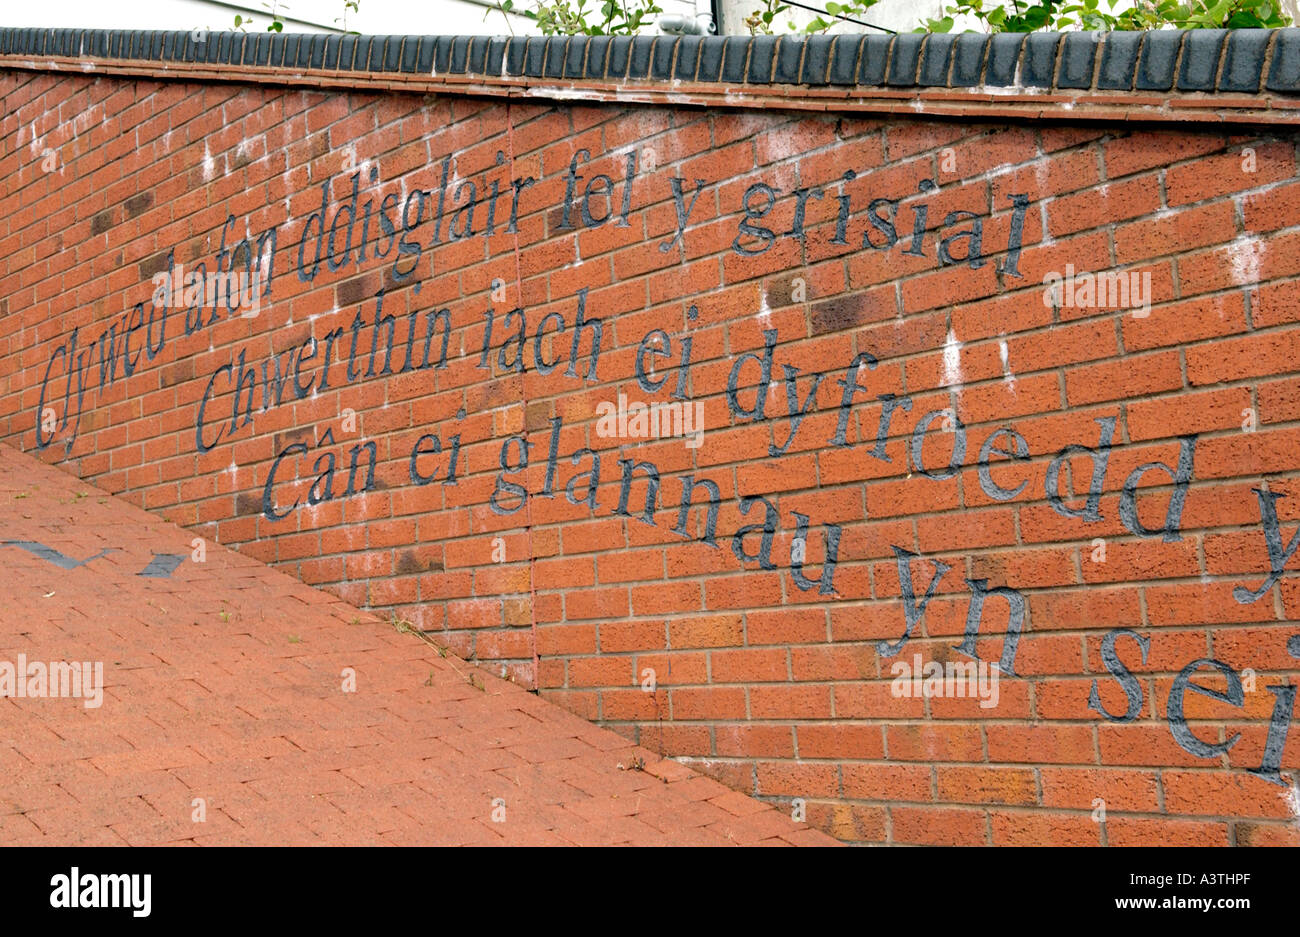 Clywed afon ddisglair fel y grisial
Chwerthin iach ei dyfroedd y
Cân ei glannau yn sei
alamy
Image ID: A3THPF
www.alamy.com